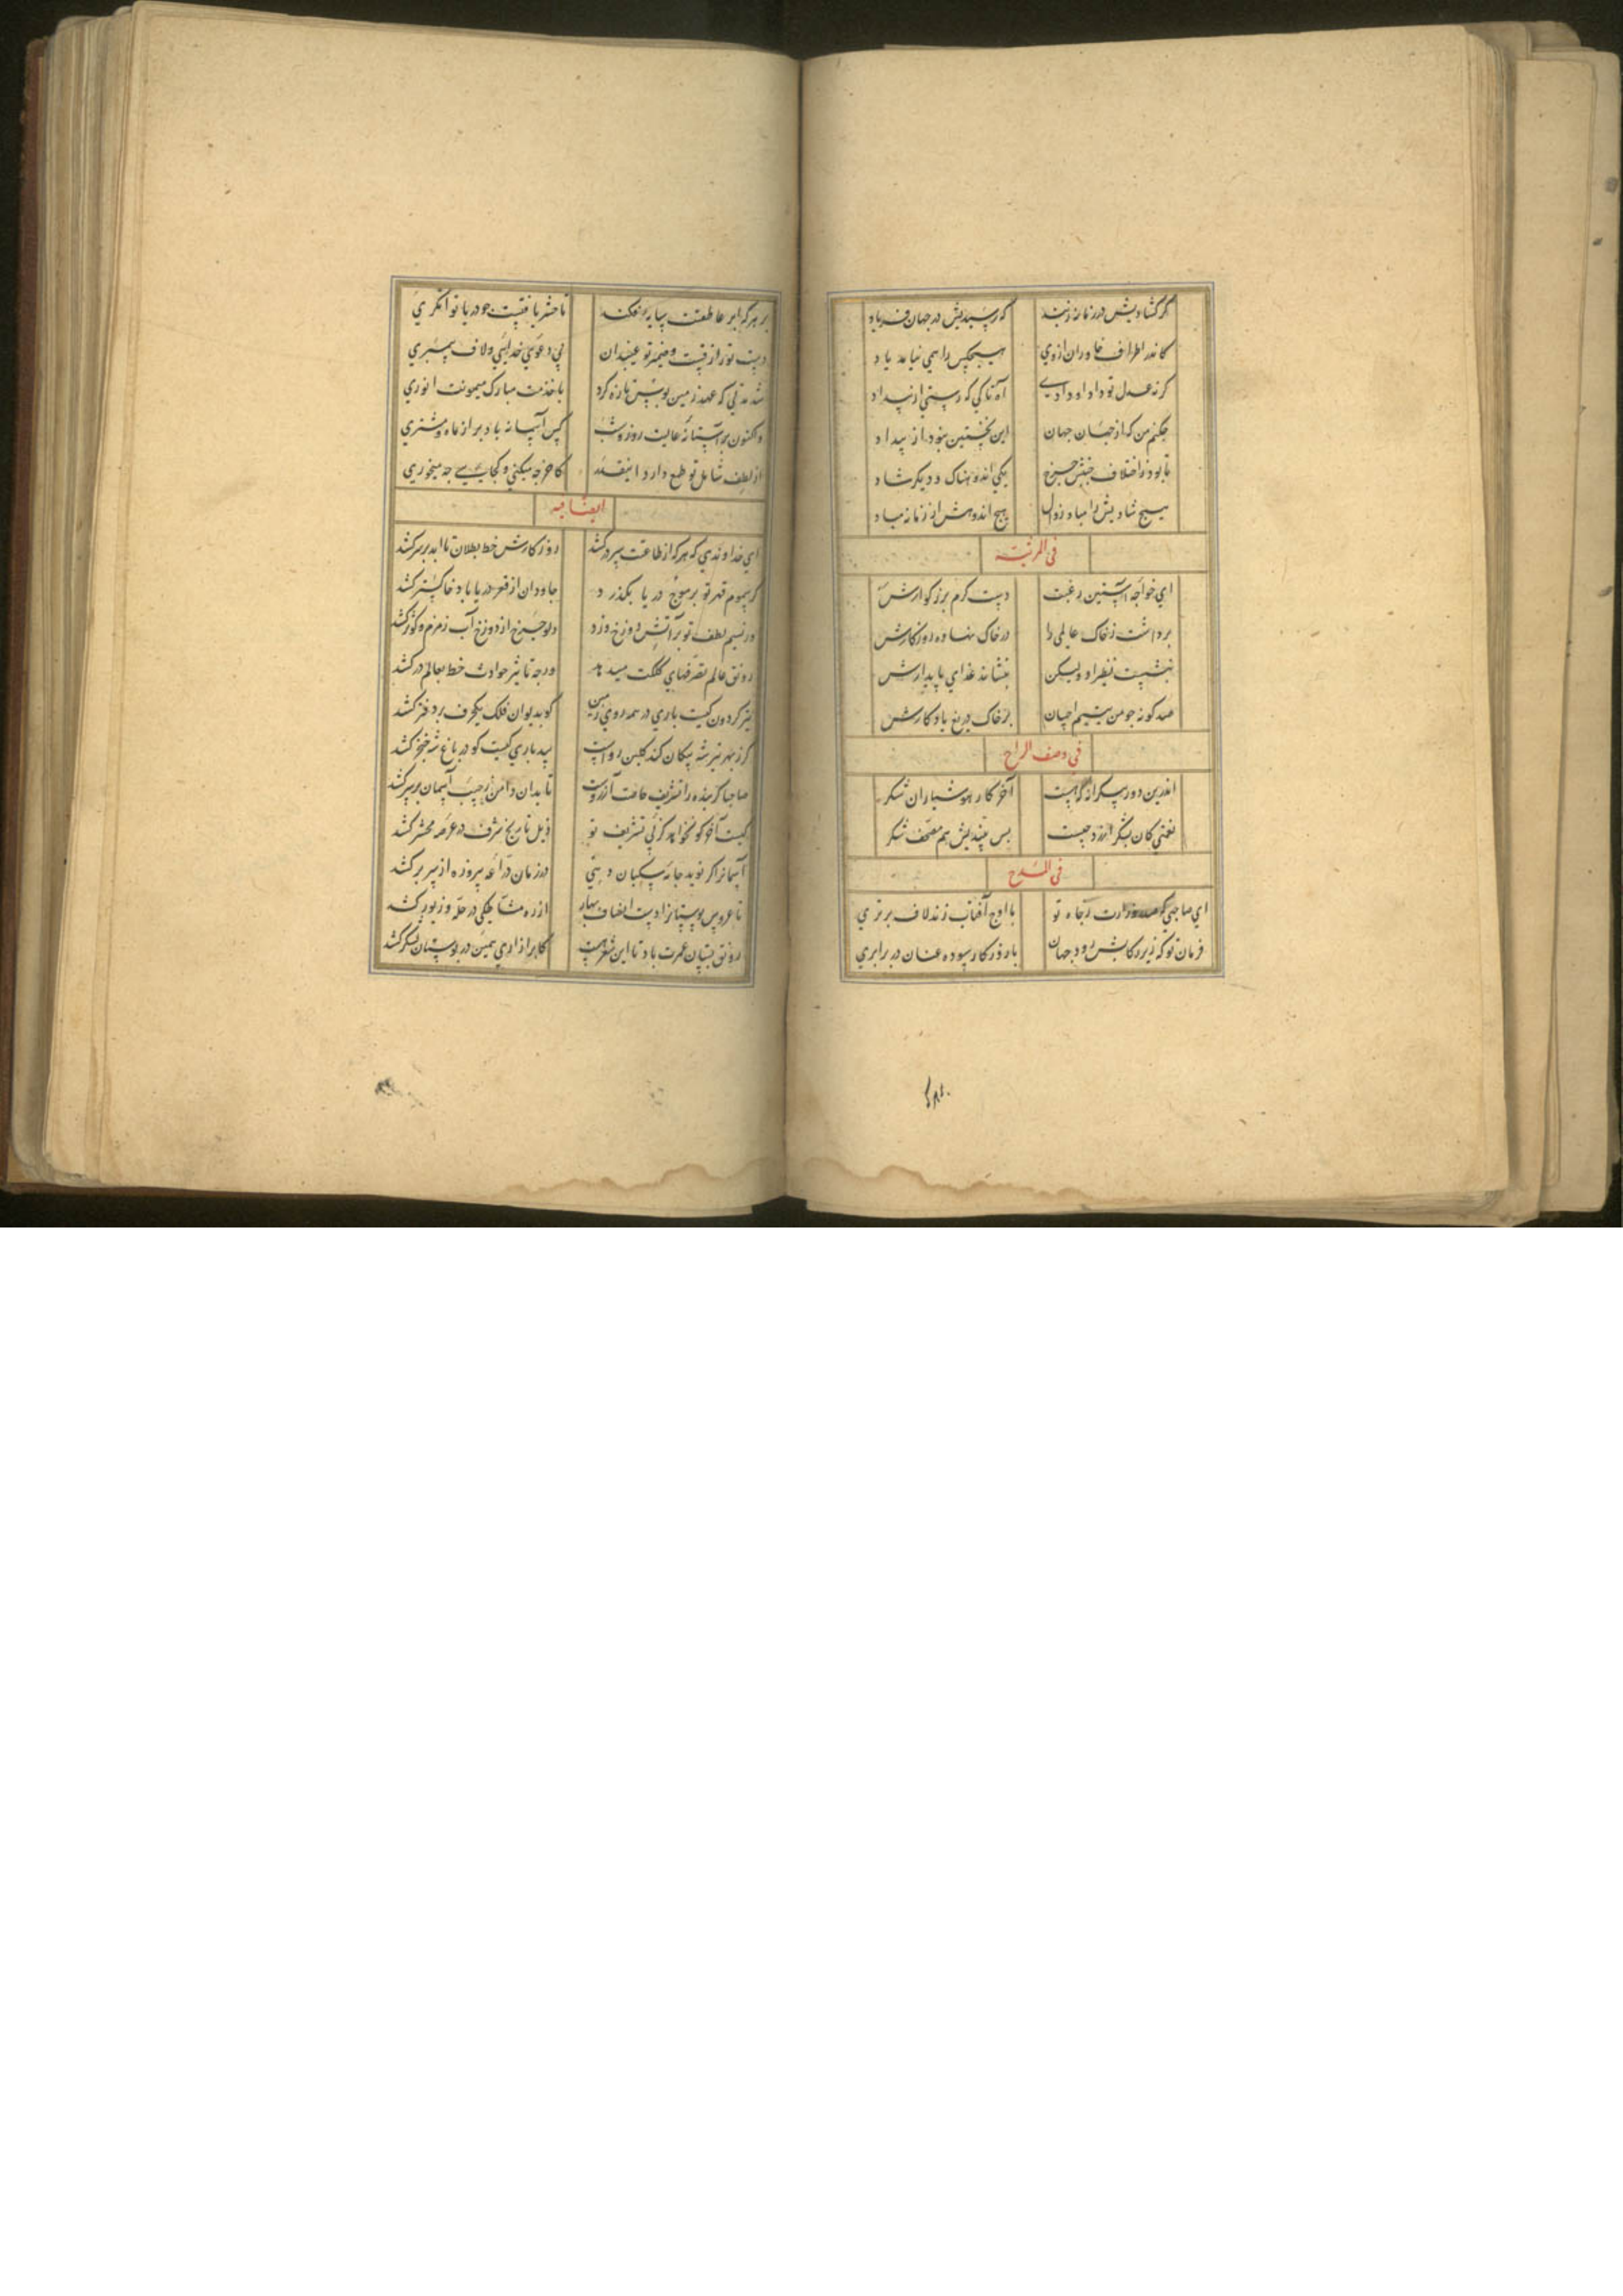 گر گشادیش در زمانه زبند
که رسیدیش در جهان فریاد
کاندر اطراف خاوران از وی
هیچکس را همی نیاید یاد
گرنه عدل تو داد او دادی
آه تا کی که رستی از بیداد
چکنم من که از جهان جهان
این نخستین نبود از بیداد
تا بود ز اختلاف جنبش چرخ
یکی اندوهناک و دیگر شاد
هیچ شادیش را مباد زوال
هیچ اندوهش از زمانه مباد
فی المرثیه
ای خواجه آستین رغبت
دست کرم بزرگوارش
برداشت ز خاک عالمی را
در خاک نهاده روزگارش
ننشست نظیر او ولیکن
بنشاند غذای پایدارش
صد گونه چو من یتیم احسان
بر خاک دریغ یادگارش
فی وصف الراح
اندرین دور بیکرانه که هست
آخر کار هوشیاران شکر
نعمتی کان بشکر ارزد چیست
بس بیندیش هم مصحف شکر
فی المدح
ای صاحبی که صدر وزارت ز جاه تو
با اوج آفتاب زند لاف برتری
فرمان تو که زیر رکابش رود جهان
با روزگار سوده عنان در برابری
بر هر که ابر عاطفتت سایه افکند
تا حشر یافتست چو دریا توانگری
دست تو رازقست و ضمیر تو غیب دان
نی دعوی خدایی و لاف پیمبری
شد مدتی که عهد زمین بوس تازه کرد
با خدمت مبارک میمونت انوری
واکنون بر آستانه عالیت روز و شب
کین آستانه باد پر از ماه و مشتری
از لطف شامل تو طمع دارد اینقدر
کاخر چه میکنی و کجایی چه میخوری
ایضا فیه
ای خداوندی که هر که از طاعتت سر درکشد
روزگارش خط بطلان تا ابد بر سر کشد
گر سموم قهر تو بر موج دریا بگذرد
جاودان از قعر دریا باد خاکستر کشد
ور نسیم لطف تو بر آتش دوزخ وزد
دلو چرخ از دوزخ آب زمزم و کوثر کشد
رونق عالم تصرفهای کلکت میدهد
ورچه تاثیر حوادث خط بعالم درکشد
تیر گردون کیست باری در همه روی زمین
کو بدیوان فلک یکحرف بر دفتر کشد
گر ز بهر تیر شه پیکان کند گلبن رواست
بید باری کیست کو در باغ شه خنجر کشد
صاحبا گر بنده را تشریف خاصت آرزوست
تا بدان دامن ز جیب آسمان برتر کشد
کیست آخر کو نخواهد کز پی تشریف تو
ذیل تاریخ شرف در عرصه محشر کشد
آسمانرا گر نوید جامه سکبان دهی
در زمان دراعه پیروزه از سر برکشد
تا عروس بوستانرا دست انصاف بهار
از ره مشاطگی در حله و زیور کشد
رونق بستان عمرت باد تا این شعر هست
کابر آزاری همی در بوستان لشکر کشد